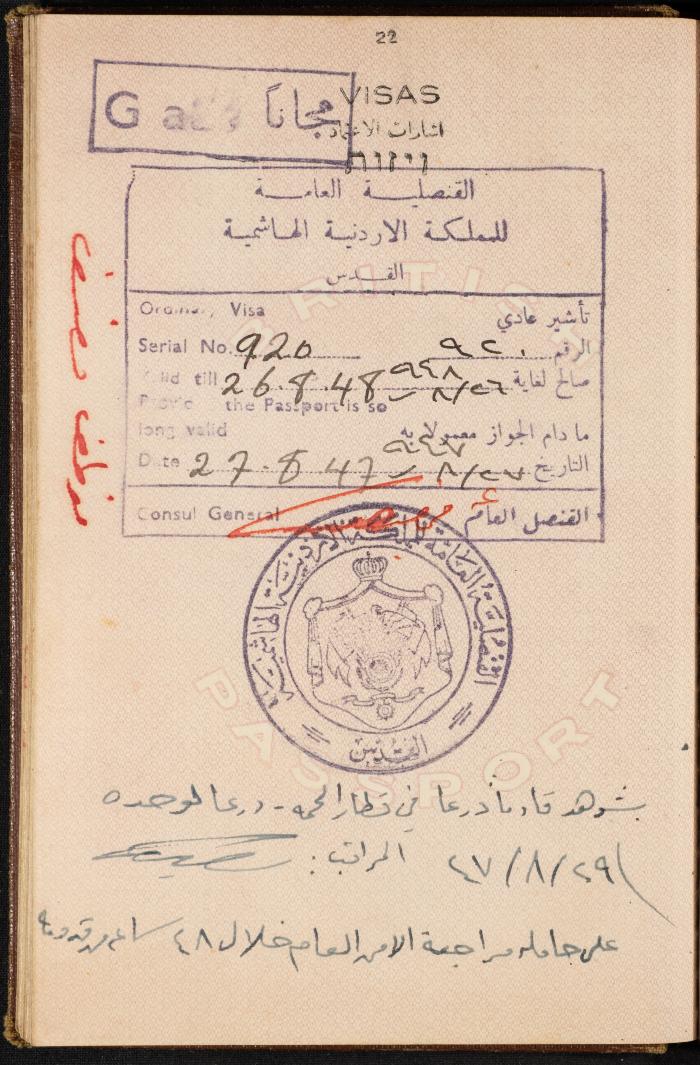 22
VISAS
اشارات الاعتماد
ויזות
Gratis مجاناً
القنصلية العامة
للمملكة الاردنية الهاشمية
القدس
BRITISH
Ordinary Visa تأشير عادي
Serial No. 920 الرقم ٩٢٠
Valid till 26.8.48 صالح لغاية ٢٦/٨/٩٤٨
Provided the Passport is so
long valid ما دام الجواز معمولا به
Date 27.8.47 التاريخ ٢٧/٨/٩٤٧
Consul General القنصل العام
القنصلية العامة للمملكة الاردنية الهاشمية
القدس
PASSPORT
شوهد قادما درعا في قطار الحمه - درعا لوحده
٢٩/٨/٤٧ المراقب:
على حامله مراجعة الامن العام خلال ٤٨ ساعه من قدومه